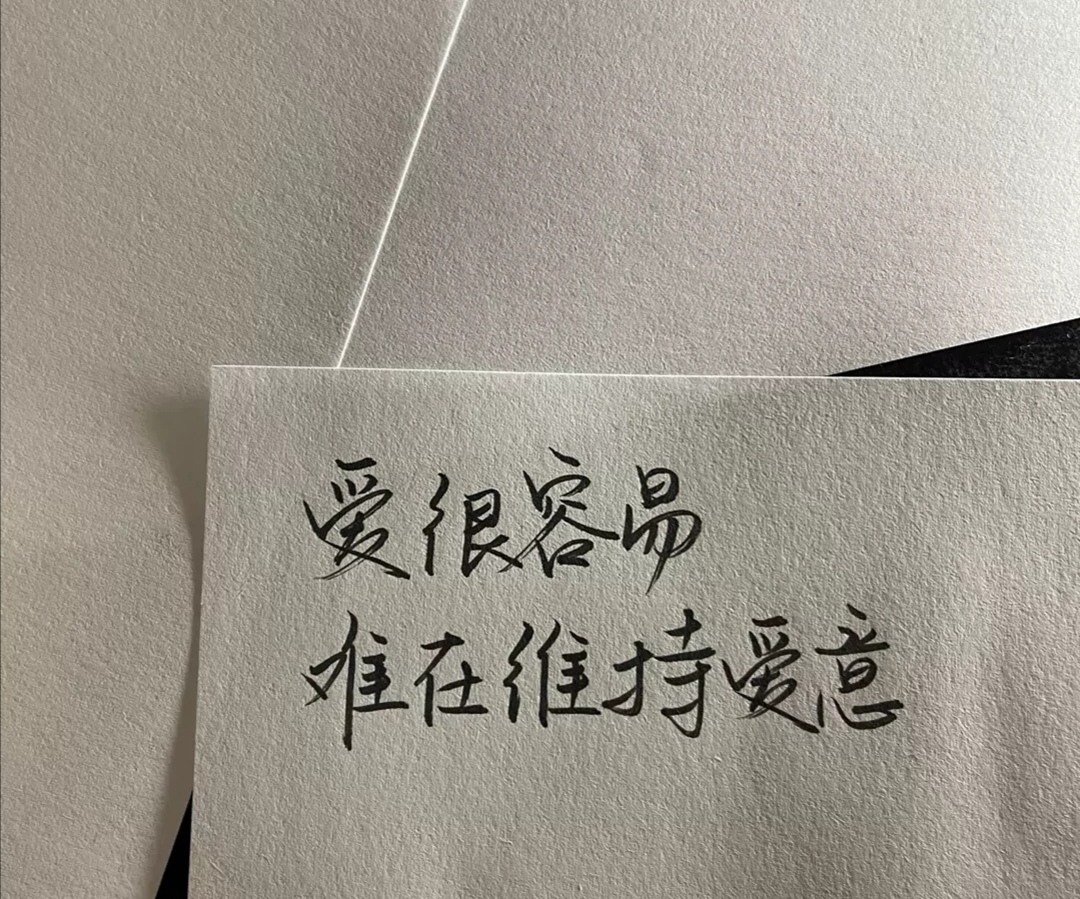 爱很容易
难在维持爱意